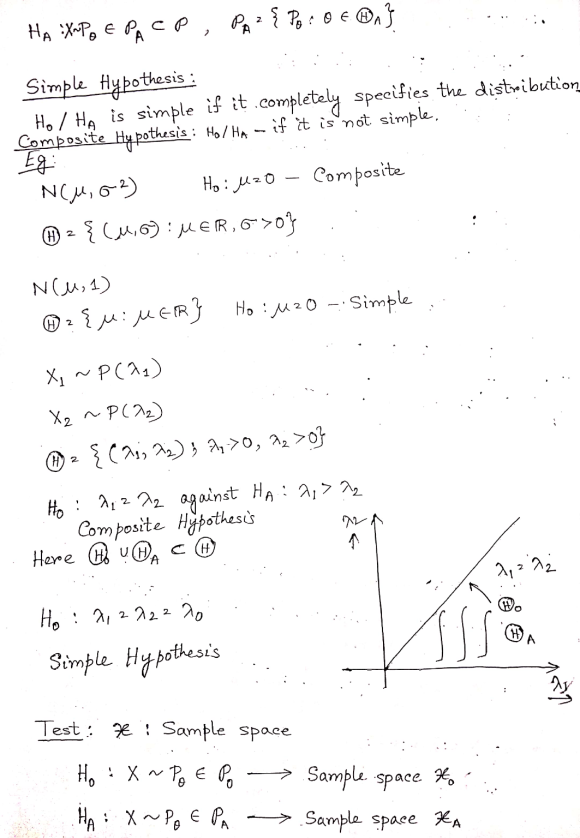 H_A : X~P_θ ∈ P_A ⊂ P , P_A = { P_θ : θ ∈ Ⓗ_A }
Simple Hypothesis :
H_0 / H_A is simple if it completely specifies the distribution
Composite Hypothesis : H_0/H_A – if it is not simple.
Eg:
N(μ, σ²) H_0 : μ=0 – Composite
Ⓗ = { (μ,σ) : μ∈ℝ, σ>0}
N(μ,1)
Ⓗ = { μ : μ∈ℝ } H_0 : μ=0 – Simple
X_1 ~ P(λ_1)
X_2 ~ P(λ_2)
Ⓗ = { (λ_1, λ_2) ; λ_1>0, λ_2>0}
H_0 : λ_1 = λ_2 against H_A : λ_1 > λ_2
Composite Hypothesis
Here Ⓗ_0 ∪ Ⓗ_A ⊂ Ⓗ
λ_2 ↑
λ_1 = λ_2
Ⓗ_0
Ⓗ_A
λ_1 →
H_0 : λ_1 = λ_2 = λ_0
Simple Hypothesis
Test : 𝒳 : Sample space
H_0 : X ~ P_θ ∈ P_0 → Sample space 𝒳_0
H_A : X ~ P_θ ∈ P_A → Sample space 𝒳_A